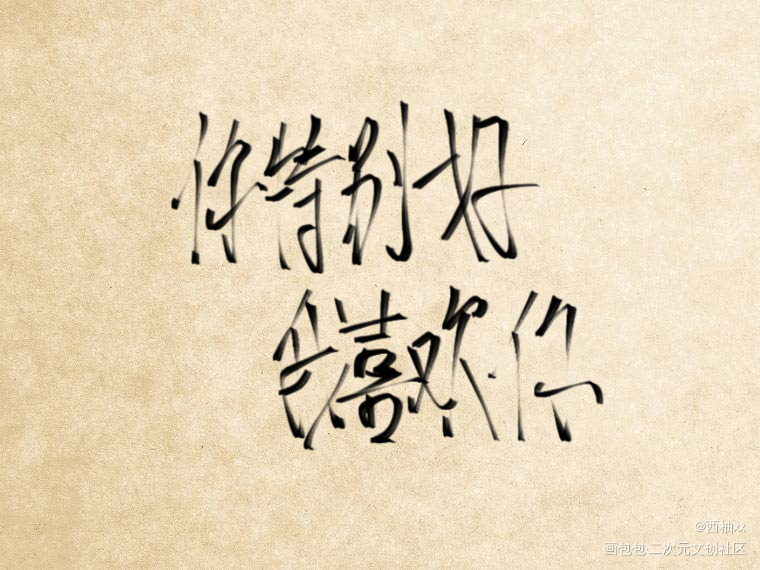 你特别好
我喜欢你
@西柚xx
画包包·二次元文创社区